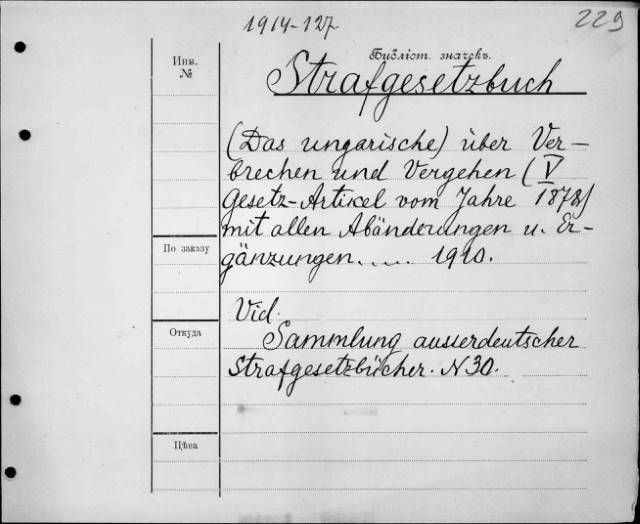 1914-127
229
Инв. №
Библіот. значекъ.
Strafgesetzbuch
(Das ungarische) über Ver-
brechen und Vergehen (V
Gesetz-Artikel vom Jahre 1878)
mit allen Abänderungen u. Er-
gänzungen..... 1910.
По заказу
Vid.
Откуда
Sammlung ausserdeutscher
Strafgesetzbücher. N 30.
Цѣна